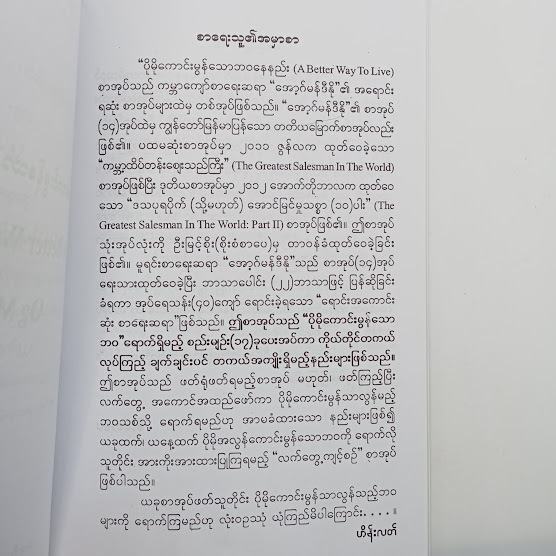 စာရေးသူ၏အမှာစာ
“ပိုမိုကောင်းမွန်သောဘဝနေနည်း (A Better Way To Live)
စာအုပ်သည် ကမ္ဘာကျော်စာရေးဆရာ “အော့ဂ်မန်ဒီနို”၏ အရောင်း
ရဆုံး စာအုပ်များထဲမှ တစ်အုပ်ဖြစ်သည်။ “အော့ဂ်မန်ဒီနို”၏ စာအုပ်
(၁၄)အုပ်ထဲမှ ကျွန်တော်မြန်မာပြန်သော တတိယမြောက်စာအုပ်လည်း
ဖြစ်၏။ ပထမဆုံးစာအုပ်မှာ ၂၀၁၁ ဇွန်လက ထုတ်ဝေခဲ့သော
“ကမ္ဘာ့ထိပ်တန်းဈေးသည်ကြီး” (The Greatest Salesman In The World)
စာအုပ်ဖြစ်ပြီး ဒုတိယစာအုပ်မှာ ၂၀၁၂ အောက်တိုဘာလက ထုတ်ဝေ
သော “ဒသပုရပိုက် (သို့မဟုတ်) အောင်မြင်မှုသစ္စာ (၁၀)ပါး” (The
Greatest Salesman In The World: Part II) စာအုပ်ဖြစ်၏။ ဤစာအုပ်
သုံးအုပ်လုံးကို ဦးမြင့်စိုး(စိုးစံစာပေ)မှ တာဝန်ခံထုတ်ဝေခဲ့ခြင်း
ဖြစ်၏။ မူရင်းစာရေးဆရာ “အော့ဂ်မန်ဒီနို”သည် စာအုပ်(၁၄)အုပ်
ရေးသားထုတ်ဝေခဲ့ပြီး ဘာသာပေါင်း (၂၂)ဘာသာဖြင့် ပြန်ဆိုခြင်း
ခံရကာ အုပ်ရေသန်း(၄၀)ကျော် ရောင်းခဲ့ရသော “ရောင်းအကောင်း
ဆုံး စာရေးဆရာ”ဖြစ်သည်။ ဤစာအုပ်သည် “ပိုမိုကောင်းမွန်သော
ဘဝ”ရောက်ရှိမည့် စည်းမျဉ်း(၁၇)ခုပေးအပ်ကာ ကိုယ်တိုင်တကယ်
လုပ်ကြည့် ချက်ချင်းပင် တကယ်အကျိုးရှိမည့်နည်းများဖြစ်သည်။
ဤစာအုပ်သည် ဖတ်ရုံဖတ်ရမည့်စာအုပ် မဟုတ်၊ ဖတ်ကြည့်ပြီး
လက်တွေ့ အကောင်အထည်ဖော်ကာ ပိုမိုကောင်းမွန်သာလွန်မည့်
ဘဝသစ်သို့ ရောက်ရမည်ဟု အာမခံထားသော နည်းများဖြစ်၍
ယခုထက်၊ ယနေ့ထက် ပိုမိုအလွန်ကောင်းမွန်သောဘဝကို ရောက်လို
သူတိုင်း အားကိုးအားထားပြုကြရမည့် “လက်တွေ့ကျင့်စဉ်” စာအုပ်
ဖြစ်ပါသည်။
ယခုစာအုပ်ဖတ်သူတိုင်း ပိုမိုကောင်းမွန်သာလွန်သည့်ဘဝ
များကို ရောက်ကြမည်ဟု လုံးဝဥဿုံ ယုံကြည်မိပါကြောင်း. . . . ။
ဟိန်းလတ်